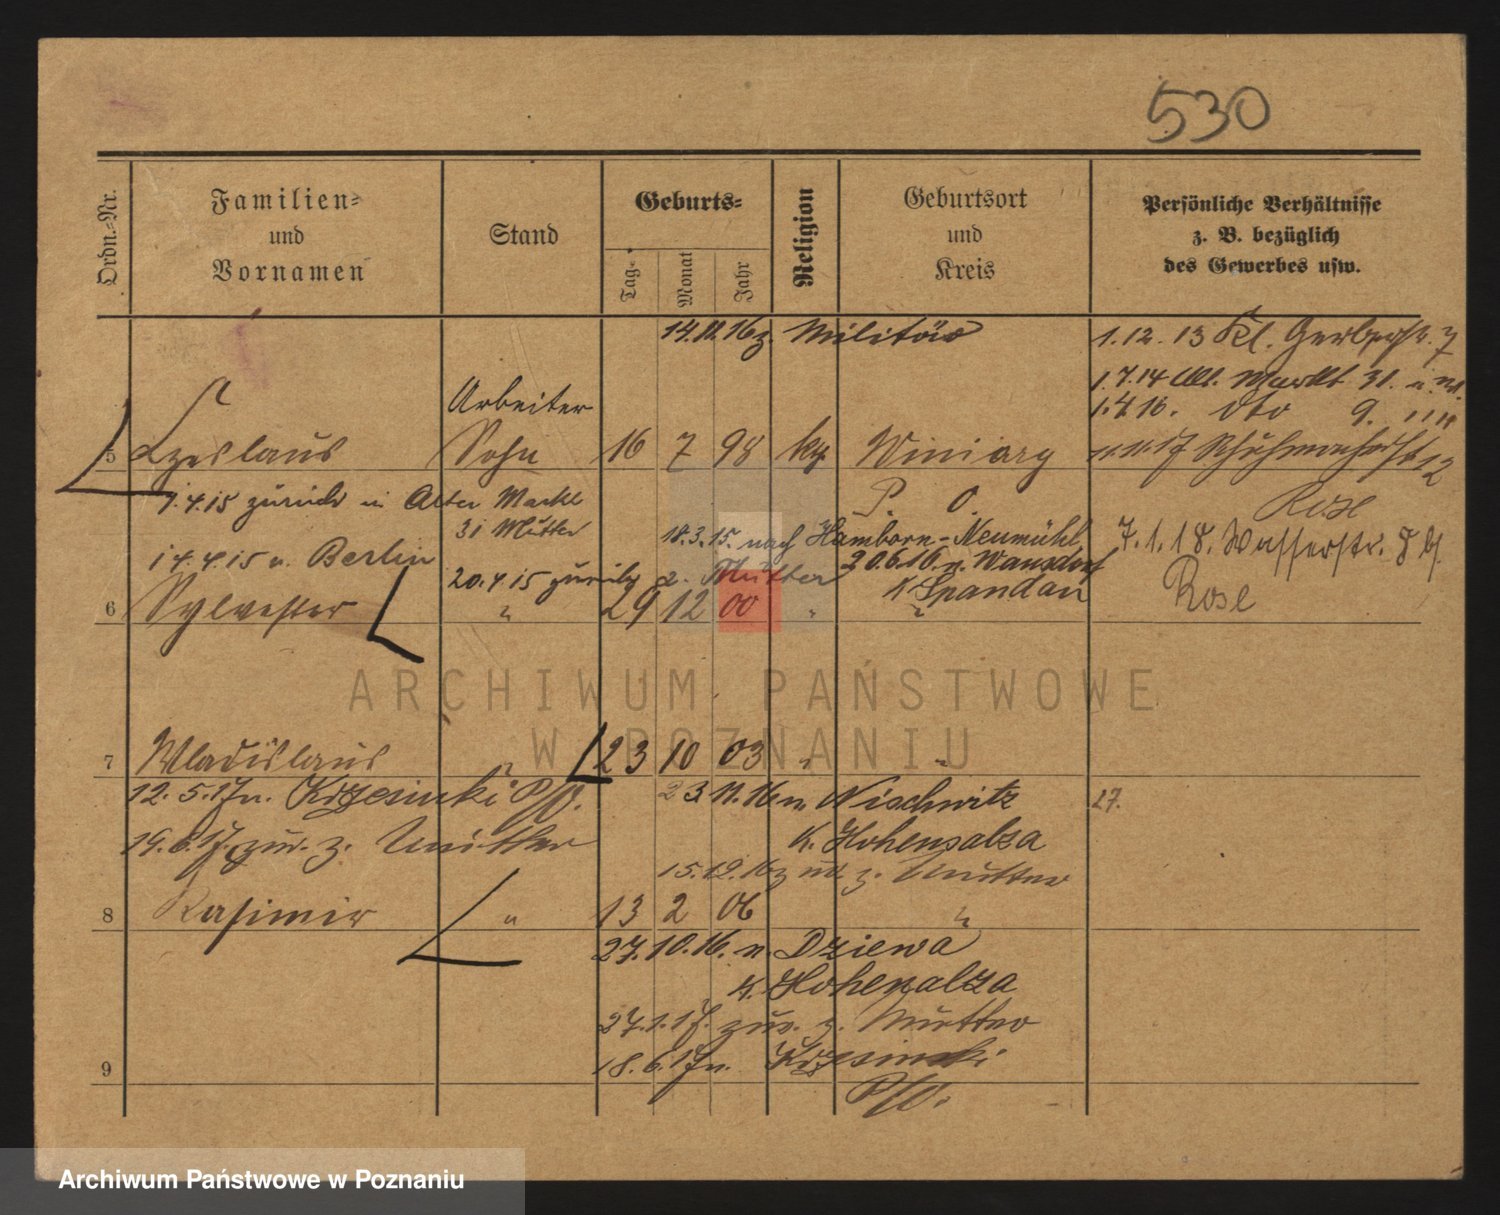 530
Ordn.-Nr.
Familien-
und
Vornamen
Stand
Geburts-
Tag-
Monat
Jahr
Religion
Geburtsort
und
Kreis
Persönliche Verhältnisse
z. B. bezüglich
des Gewerbes usw.
14.11.16 z. Militär
1.12.13 Kl. Gerberstr. 7
1.7.14 Alt. Markt 31.
1.4.16. dto 9.
Arbeiter
5 Czeslaus Sohn 16 7 98 ka. Winiary
P. O.
12
Rose
1.4.15 zurück in Alter Markt
31 Mutter
18.3.15. nach Hamborn-Neumühl
7.1.18. Wasserstr. 8 b/.
Rose
14.4.15 n. Berlin
20.4.15 zurück z. Mutter
20.6.16. n. Wansdorf
K. Spandau
6 Sylvester " 29 12 00 " "
7 Wladislaus " 23 10 03 " "
12.5.17 n. Krzesinki P/O.
23.11.16 n. Nischwitz
27.
K. Hohensalza
19.6.17. zur. z. Mutter
15.12.16 zur. z. Mutter
8 Kasimir " 13 2 06 "
27.10.16. n. Dziewa
K. Hohensalza
27.1.17. zur. z. Mutter
18.6.17 n. Krzesinki
P/O.
9
ARCHIWUM PAŃSTWOWE
W POZNANIU
Archiwum Państwowe w Poznaniu